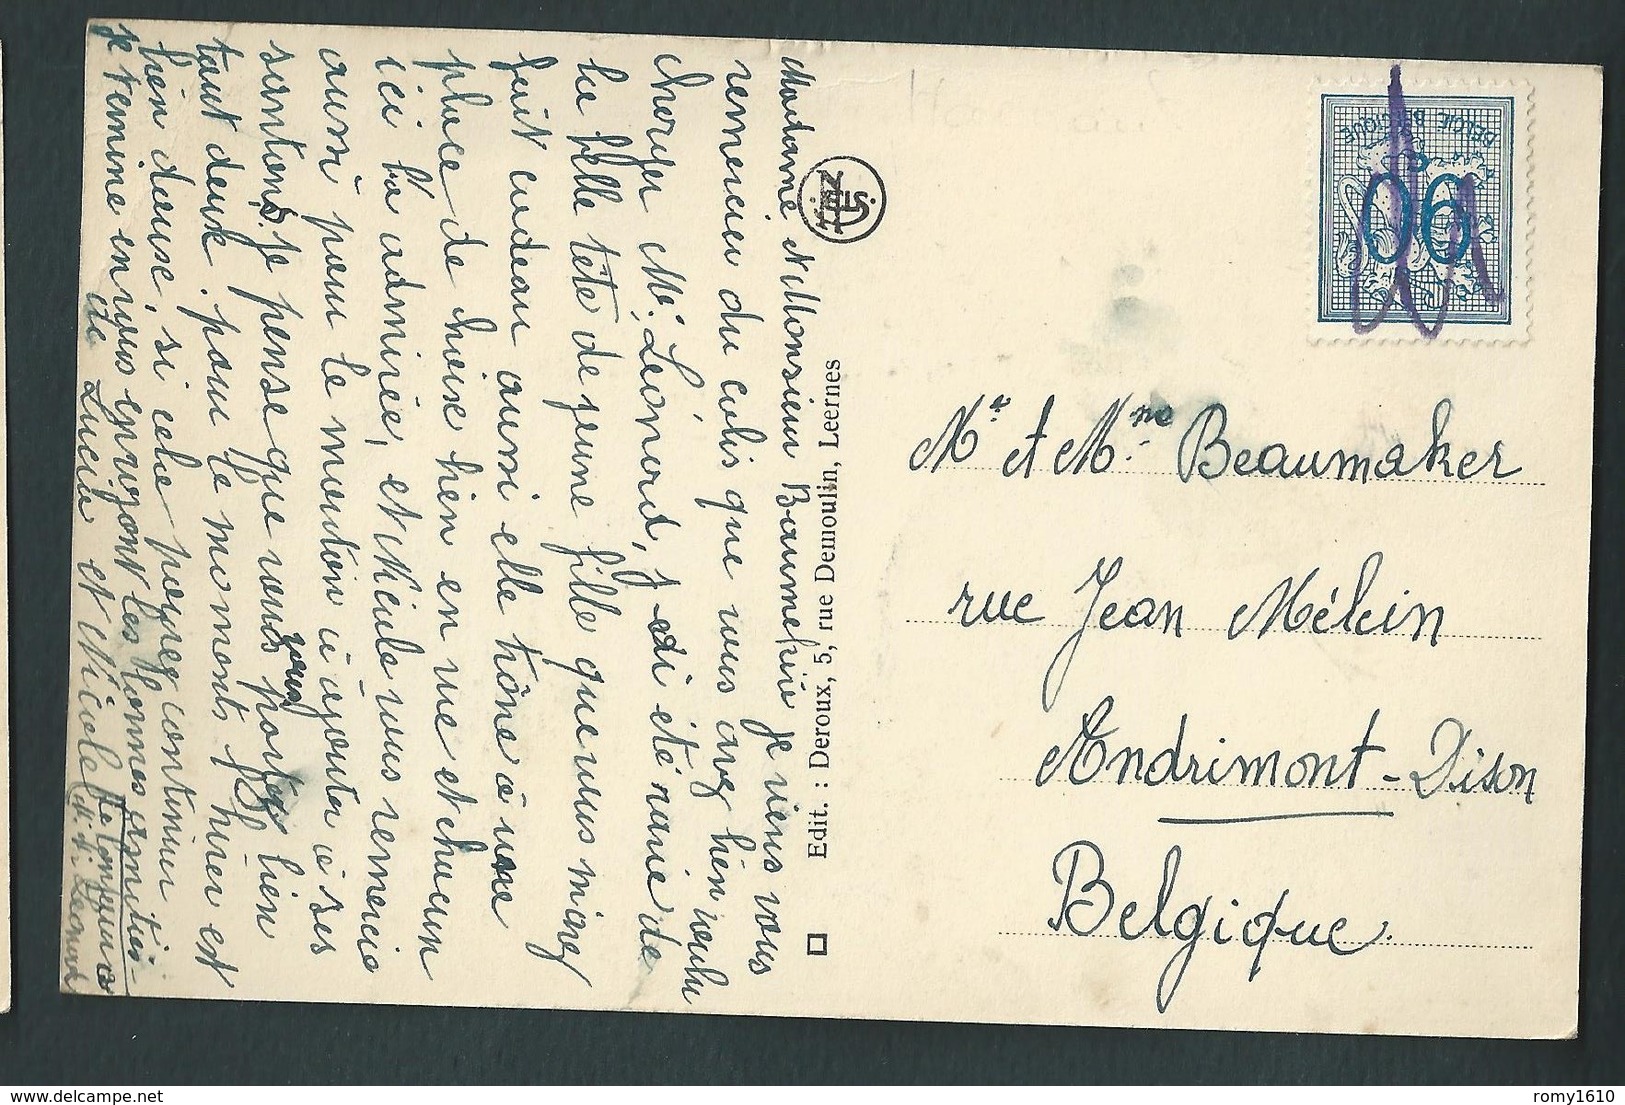 Madame et Monsieur Baumekire je viens vous
remercier du colis que vous avez bien voulu
charger Mr. Léonard, j ai été ravie de
la belle tête de jeune fille que vous m'avez
fait cadeau aussi elle trône à une
place de choix bien en vue et chacun
ici l'a admirée, et Nicole vous remercie
aussi pour le mouton à ajouter à ses
santions. Je pense que vous vous portez bien
tout deux. pour le moment p. hiver est
bien douse, si cela pouvez continuer
je termine en vous envoyant les bonnes amitiés-
de Lucia et Nicole
et Mr Léonard
Edit. : Deroux, 5, rue Demoulin, Leernes
BELGIE BELGIQUE
BELGIE BELGIQUE
90
Mr et Mme Beaumaker
rue Jean Mélein
Andrimont - Dison
Belgique.
romy1610